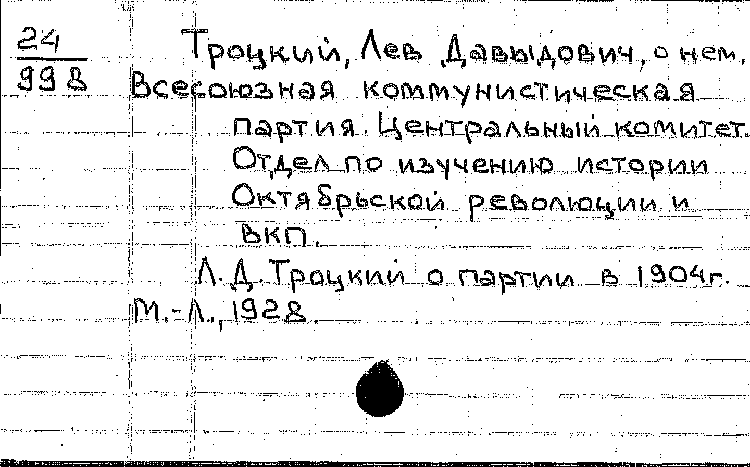 24
998
Троцкий, Лев Давыдович, о нем.
Всесоюзная коммунистическая
партия. Центральный комитет.
Отдел по изучению истории
Октябрьской революции и
ВКП.
Л. Д. Троцкий о партии в 1904г.
М.-Л., 1928.